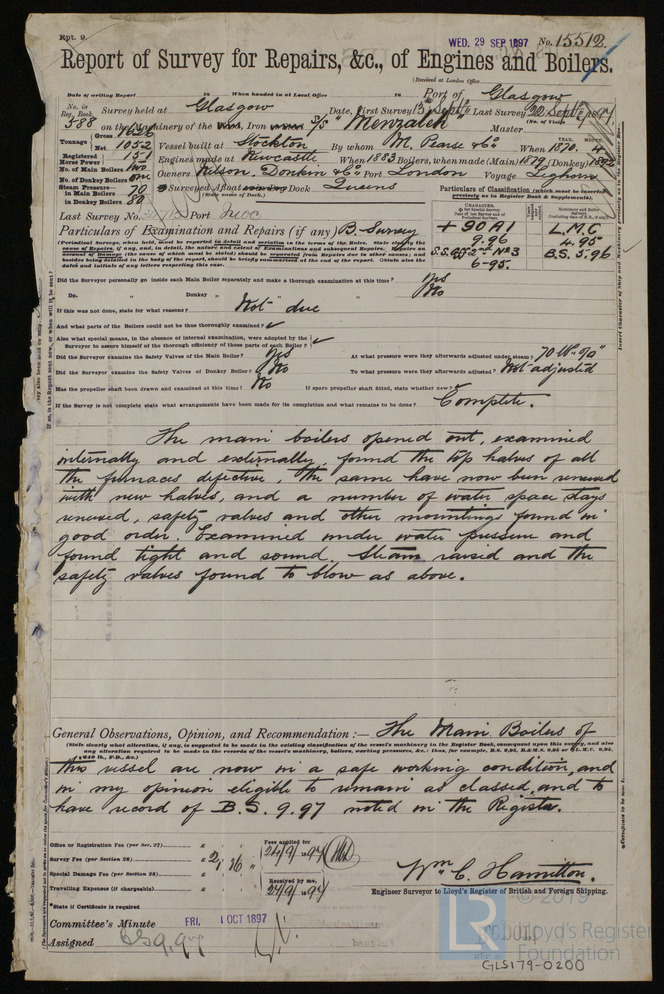 Rpt. 9.
WED. 29 SEP 1897 No. 15512.
Report of Survey for Repairs, &c., of Engines and Boilers.
(Received at London Office
Date of writing Report 18 When handed in at Local Office 18 Port of Glasgow
No. in Reg. Book. 588
Survey held at Glasgow Date, First Survey 13th Sept Last Survey 22 Sept 1897
(No. of Visits
on the Machinery of the Wood, Iron S/S "Menzaleh" Master
Tonnage Gross 1626
Net 1052
Vessel built at Stockton By whom M. Pearse & Co When 1870. 4
YEAR. MONTH.
Registered Horse Power 151
Engines made at Newcastle When 1883 Boilers, when made (Main) 1879 (Donkey) 1892
No. of Main Boilers two
No. of Donkey Boilers one
Owners Wilson, Donkin & Co Port London Voyage Leghorn
Steam Pressure in Main Boilers 70
in Donkey Boilers 80
Surveyed Afloat or in Dry Dock Queens
(State name of Dock.)
Particulars of Classification (which must be inserted precisely as in Register Book & Supplements).
Last Survey No. Port
Particulars of Examination and Repairs (if any) B. Survey
+ 90 A1 L.M.C
9.96 4.95
S.S. No 3 B.S. 5.96
6-95.
Did the Surveyor personally go inside each Main Boiler separately and make a thorough examination at this time? Yes
Do. " Donkey " " " " No
If this was not done, state for what reasons? Not due
And what parts of the Boilers could not be thus thoroughly examined? ✓
Also what special means, in the absence of internal examination, were adopted by the Surveyor to assure himself of the thorough efficiency of those parts of each Boiler? ✓
Did the Surveyor examine the Safety Valves of the Main Boiler? Yes At what pressure were they afterwards adjusted under steam? 70 lb
Did the Surveyor examine the Safety Valves of Donkey Boiler? No To what pressure were they afterwards adjusted? Not adjusted
Has the propeller shaft been drawn and examined at this time? No If spare propeller shaft fitted, state whether new? ✓
If the Survey is not complete state what arrangements have been made for its completion and what remains to be done? Complete.
The main boilers opened out, examined
internally and externally, found the top halves of all
the furnaces defective, the same have now been renewed
with new halves, and a number of water space stays
renewed, safety valves and other mountings found in
good order. Examined under water pressure and
found tight and sound. Steam raised and the
safety valves found to blow as above.
General Observations, Opinion, and Recommendation:— The Main Boilers of
(State clearly what alteration, if any, is suggested to be made in the existing classification of the vessel's machinery in the Register Book, consequent upon this survey, and also
any alteration required to be made in the records of the vessel's machinery, boilers, working pressures, &c.; thus, for example, B.S. 9.95, B.&M.S. 9,95 or L.M.C. 9,95,
this vessel are now in a safe working condition, and
in my opinion eligible to remain as classed, and to
have record of B.S. 9.97 noted in the Register.
Office or Registration Fee (per Sec. 27) £
Survey Fee (per Section 28) £ 2 " 16 "
Special Damage Fee (per Section 28) £
Travelling Expenses (if chargeable) £
Fees applied for 24/9/1897
Received by me, 27/9/1897
Wm C. Hamilton.
Engineer Surveyor to Lloyd's Register of British and Foreign Shipping.
*State if Certificate is required
Committee's Minute FRI. 1 OCT 1897
Assigned BS 9.97
© 2019
LR
Lloyd's Register
Foundation
GLS179-0200